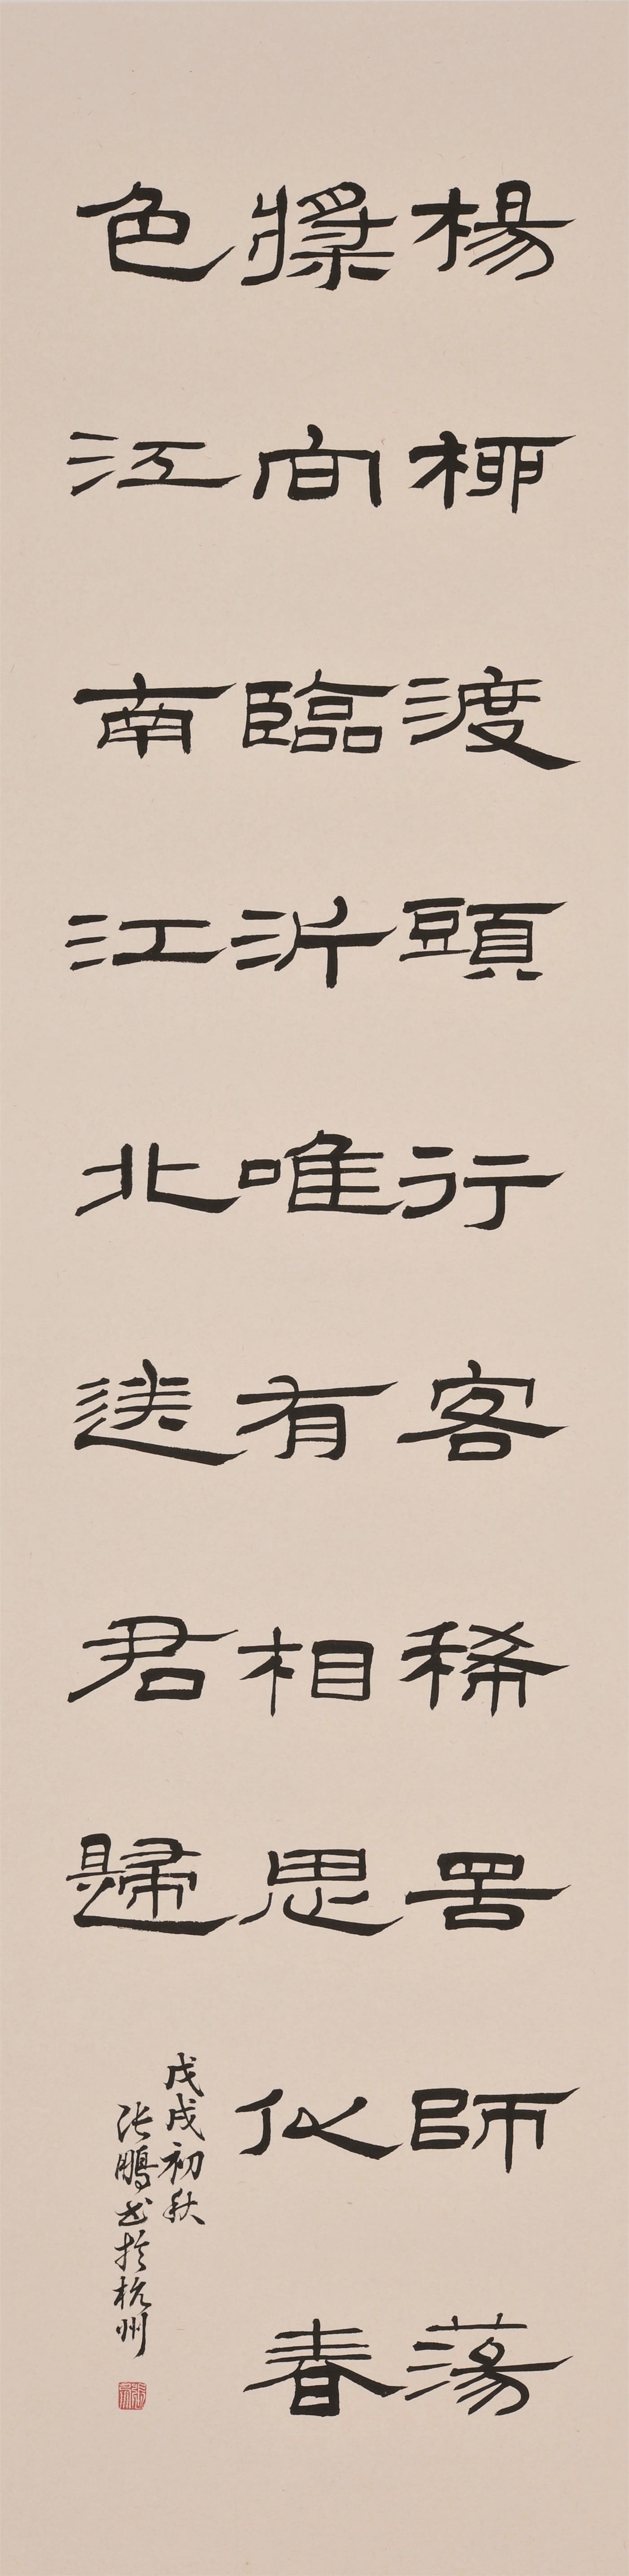 楊柳渡頭行客稀罟師蕩
槳向臨沂唯有相思似春
色江南江北送君歸
戊戌初秋
張鵬書於杭州